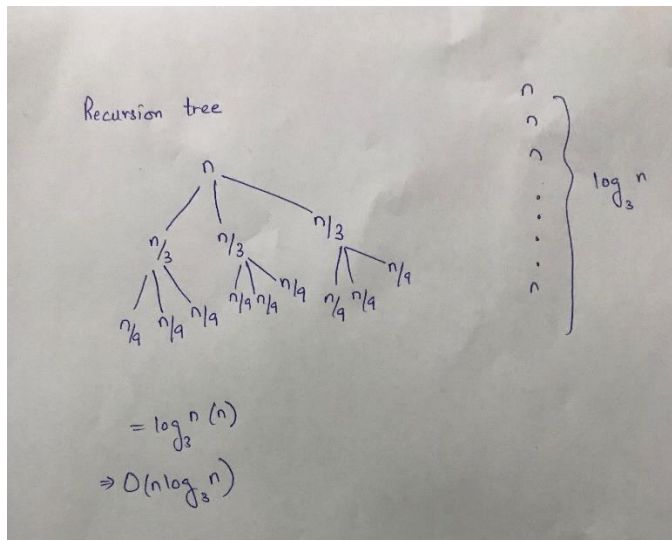 Recursion tree
n
n/3 n/3 n/3
n/9 n/9 n/9 n/9 n/9 n/9 n/9 n/9 n/9
n
n
n
.
.
.
.
n
log₃ n
= log₃ n (n)
⇒ O(n log₃ n)